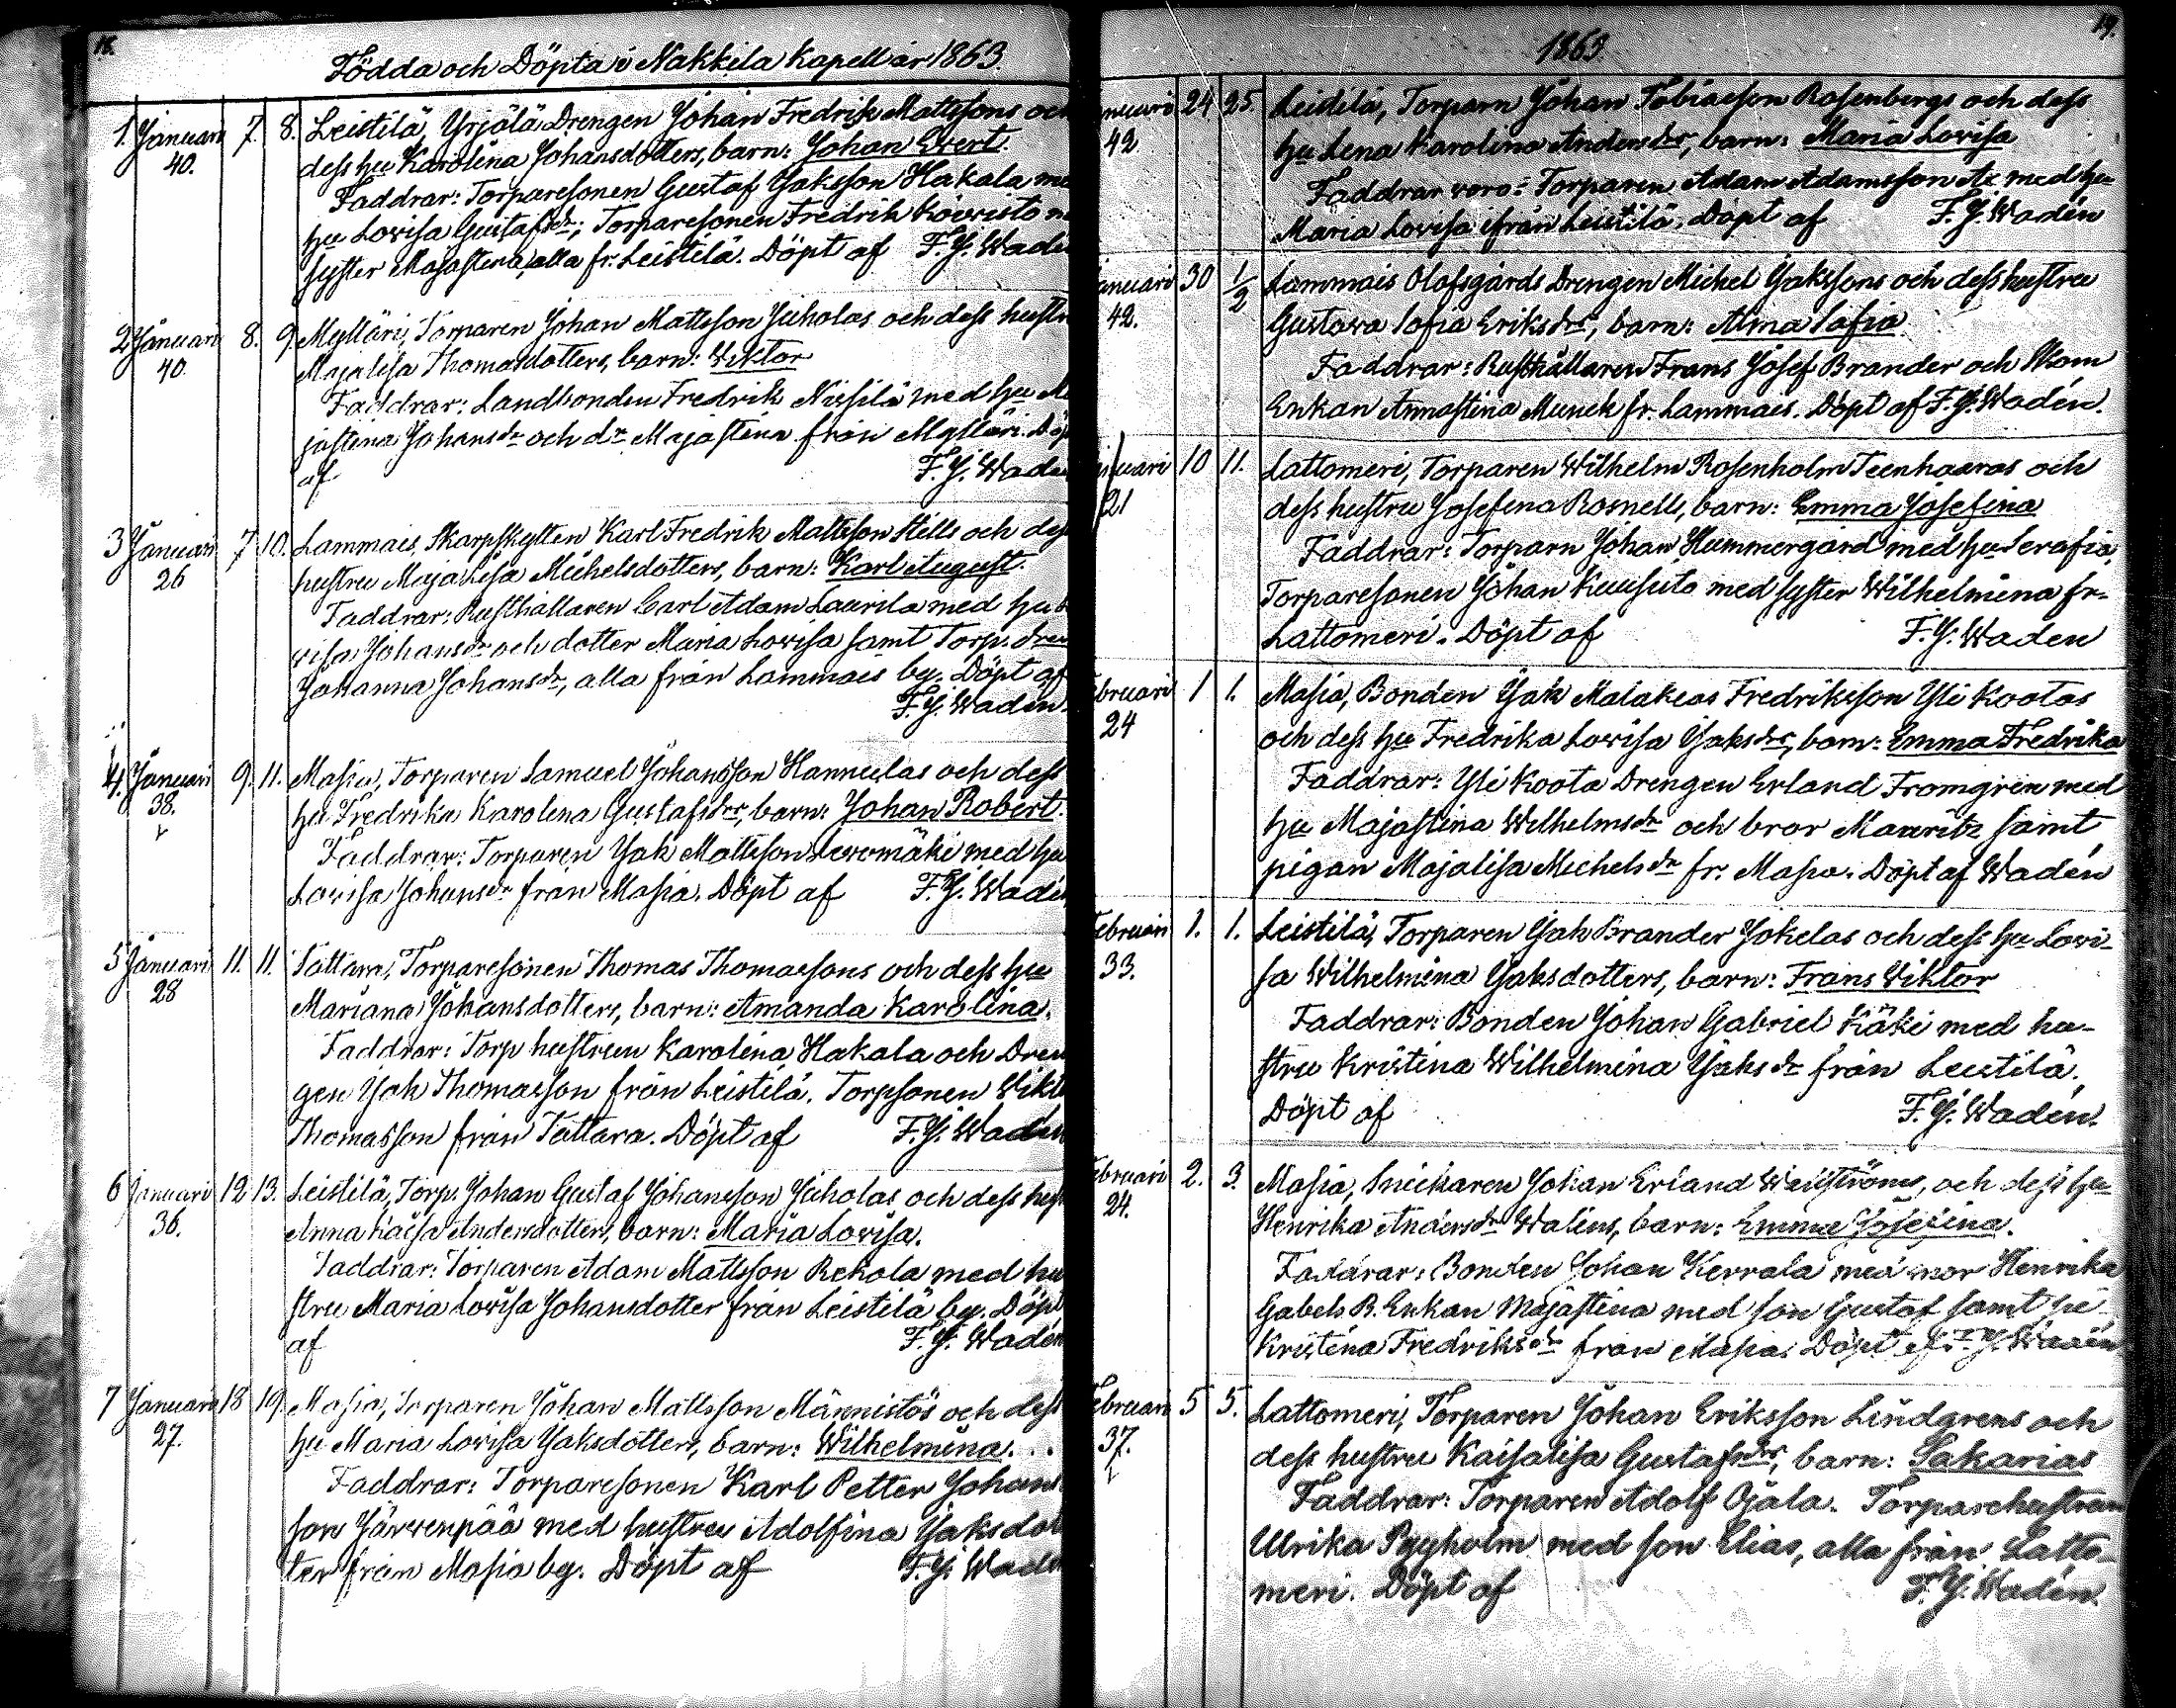 18.
Födda och Döpta i Nakkila Kapell år 1863.
1 Januari 7. 8. Leistilä, Yrjälä Drengen Johan Fredrik Mattssons och
40. dess hu Karolina Johansdotters, barn: Johan Evert.
Faddrar: Torparesonen Gustaf Jaksson Hakala me
hu Lovisa Gustafsdr; Torparesonen Fredrik Koivisto m
syster Majastina, alla fr. Leistilä. Döpt af F. J. Wadé
2 Januari 8. 9. Mylläri, Torparen Johan Mattsson Juholas och dess hustr
40. Majalisa Thomasdotters, barn: Wiktor
Faddrar: Landbonden Fredrik Nissilä med hu Ma
jastina Johansdr och dr Majastina från Mylläri. Döp
af F. J. Wadé
3 Januari 7 10. Lammais, Skarpskytten Karl Fredrik Mattsson Hills och des
26 hustru Maja Lisa Michelsdotters, barn: Karl August.
Faddrar: Rusthållaren Carl Adam Laurila med hu Lo
visa Johansdr och dotter Maria Lovisa samt Torp. dren
Johanna Johansdr, alla från Lammais by. Döpt af
F. J. Wadén.
4. Januari 9. 11. Masia, Torparen Samuel Johansson Hannulas och dess
38. hu Fredrika Karolina Gustafsdrs, barn: Johan Robert.
Faddrar: Torparen Jak Mattsson Levomäki med hu
Lovisa Johansdr från Masia. Döpt af F. J. Wadén
5 Januari 11. 11. Tattara, Torparesonen Thomas Thomassons och dess hu
28 Mariana Johansdotters, barn: Amanda Karolina.
Faddrar: Torp hustrun Karolina Hakala och Dren
gen Jak Thomasson från Leistilä. Torpsonen Wikto
Thomasson från Tattara. Döpt af F. J. Wadén
6 Januari 12 13. Leistilä, Torp. Johan Gustaf Johansson Juholas och dess hust
36. Anna Kaisa Andersdotters, barn: Maria Lovisa.
Faddrar: Torparen Adam Mattsson Rekola med hu
stru Maria Lovisa Johansdotter från Leistilä by. Döpt
af F. J. Wadén
7 Januari 18 19. Masia, Torparen Johan Mattsson Männistös och dess
27. hu Maria Lovisa Jaksdotters, barn: Wilhelmina.
Faddrar: Torparesonen Karl Petter Johans
son Järvenpää med hustru Adolfina Jaksdot
ter från Masia by. Döpt af F. J. Wadé
19.
1863.
nuari 24 25. Leistilä, Torparn Johan Tobiasson Rosenbergs och dess
42 hu Lena Karolina Andersdrs, barn: Maria Lovisa
Faddrar voro: Torparen Adam Adamsson med hu
Maria Lovisa ifrån Leistilä. Döpt af F. J. Wadén
anuari 30 1/2 Lammais Olofsgårds Drengen Michel Jakssons och dess hustru
42. Gustava Sofia Eriksdrs, barn: Alma Sofia
Faddrar: Rusthållaren Frans Josef Brander och Skom
Enkan Annastina Munck fr. Lammais. Döpt af F. J. Wadén.
nuari 10 11. Lattomeri, Torparen Wilhelm Rosenholm Teenhaaras och
21 dess hustru Josefina Rosnells, barn: Emma Josefina
Faddrar: Torparn Johan Hummergård med hu Serafia,
Torparesonen Johan Kuusisto med syster Wilhelmina fr.
Lattomeri. Döpt af F. J. Wadén
ebruari 1 1. Masia, Bonden Jak Malakias Fredriksson Yli Kootas
24 och dess hu Fredrika Lovisa Jaksdrs, barn: Emma Fredrika
Faddrar: Yli Koota Drengen Erland Fromgrén med
hu Majastina Wilhelmsdr och bror Mauritz samt
pigan Majalisa Michelsdr fr. Masia. Döpt af Wadén
ebruari 1. 1. Leistilä, Torparen Jak Brander Jokelas och dess hu Lovi-
33. sa Wilhelmina Jaksdotters, barn: Frans Wiktor
Faddrar: Bonden Johan Gabriel Käki med hu-
stru Kristina Wilhelmina Jaksdr från Leistilä.
Döpt af F. J. Wadén.
ebruari 2. 3. Masia, Snickaren Johan Erland, och dess hu
24. Henrika Andersdr Walins, barn: Emma Josefina.
Faddrar: Bonden Johan Kerrala med mor Henrika
Gabels. B. Enkan Majastina med son Gustaf samt pi
Kristina Fredriksdr från Masia. Döpt af F. J. Wadén
ebruari 5 5. Lattomeri, Torparen Johan Eriksson Lindgrens och
37. dess hustru Kaisalisa Gustafsdrs, barn: Sakarias
Faddrar: Torparen Adolf Ojala. Torparehustrun
Ulrika Pyyholm med son Elias, alla från Latto-
meri. Döpt af F. J. Wadén.